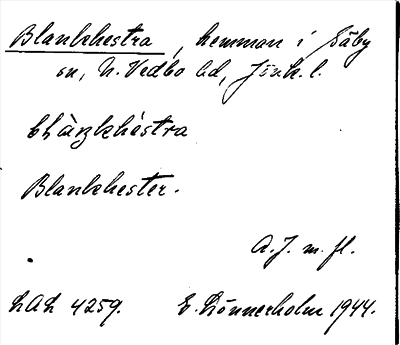 Blankhestra, hemman i Säby
sn, N. Vedbo hd, Jönk. l.
blàŋkhèstra
Blankhester.
A. J. m. fl.
LAL 4259. E. Lönnerholm 1944.